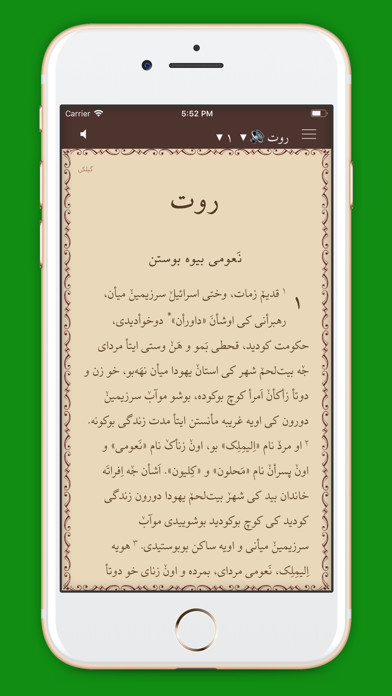 Carrier 5:52 PM
روت ۱
گیلکی
روت
نَعومی بیوه بوستن
۱ ۱ قدیمˇ زمات، وختی اسرائیلˇ سرزیمینˇ میأن،
رهبرأنی کی اوشأنَ «داورأن»* دوخوأدیدی،
حکومت کودید، قحطی بَمو و هَنˇ وستی ایتأ مردای
جٚه بیت‌لحمˇ شهر کی استانˇ یهودا میأن نهه‌بو، خو زن و
دوتأ زأکأنˇ اَمرأ کوچ بوکوده، بوشو موآبˇ سرزیمینˇ
دورون کی اویه غریبه مأنستن ایتأ مدت زندگی بوکونه.
۲ او مردˇ نام «اِلیمِلِک» بو، اونˇ زنأکˇ نام «نَعومی» و
اونˇ پسرأنˇ نام «مَحلون» و «کِلیون». اَشأن جٚه اِفراتَه
خاندان بید کی شهرˇ بیت‌لحمˇ یهودا دورون زندگی
کودید کی کوچ بوکودید بوشوییدی موآبˇ
سرزیمینˇ میأنی و اویه ساکن بوبوستیدی. ۳ هویه
اِلیمِلِک، نَعومی مردای، بمرده و اونˇ زنای خو دوتأ